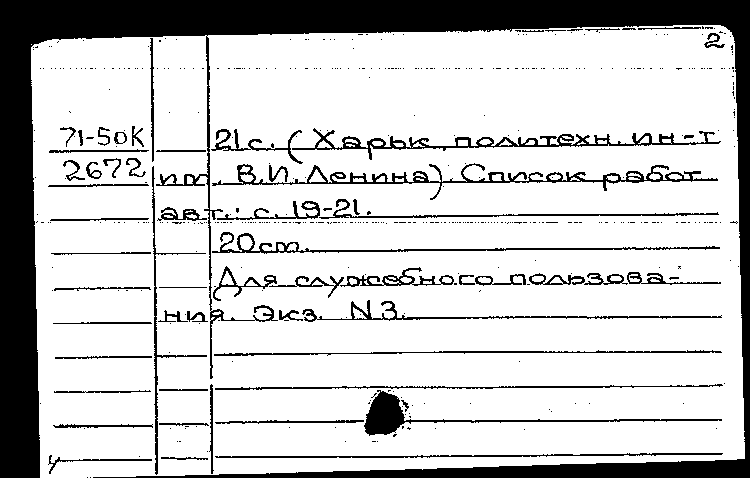 2
71-50К 21с. (Харьк. политехн. ин-т
2672 им. В.И. Ленина). Список работ
авт.: с. 19-21.
20 cm.
Для служебного пользова-
ния. Экз. N 3.